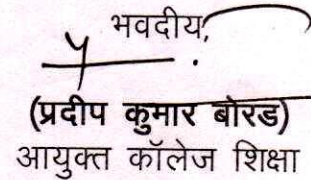 भवदीय,
(प्रदीप कुमार बोरड)
आयुक्त कॉलेज शिक्षा